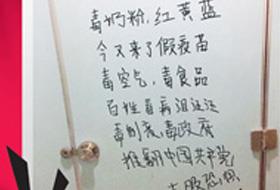 毒奶粉，红黄蓝
今又来了假疫苗
毒空气，毒食品
百姓有病泪汪汪
毒制衣毒政府
推翻中国共产党